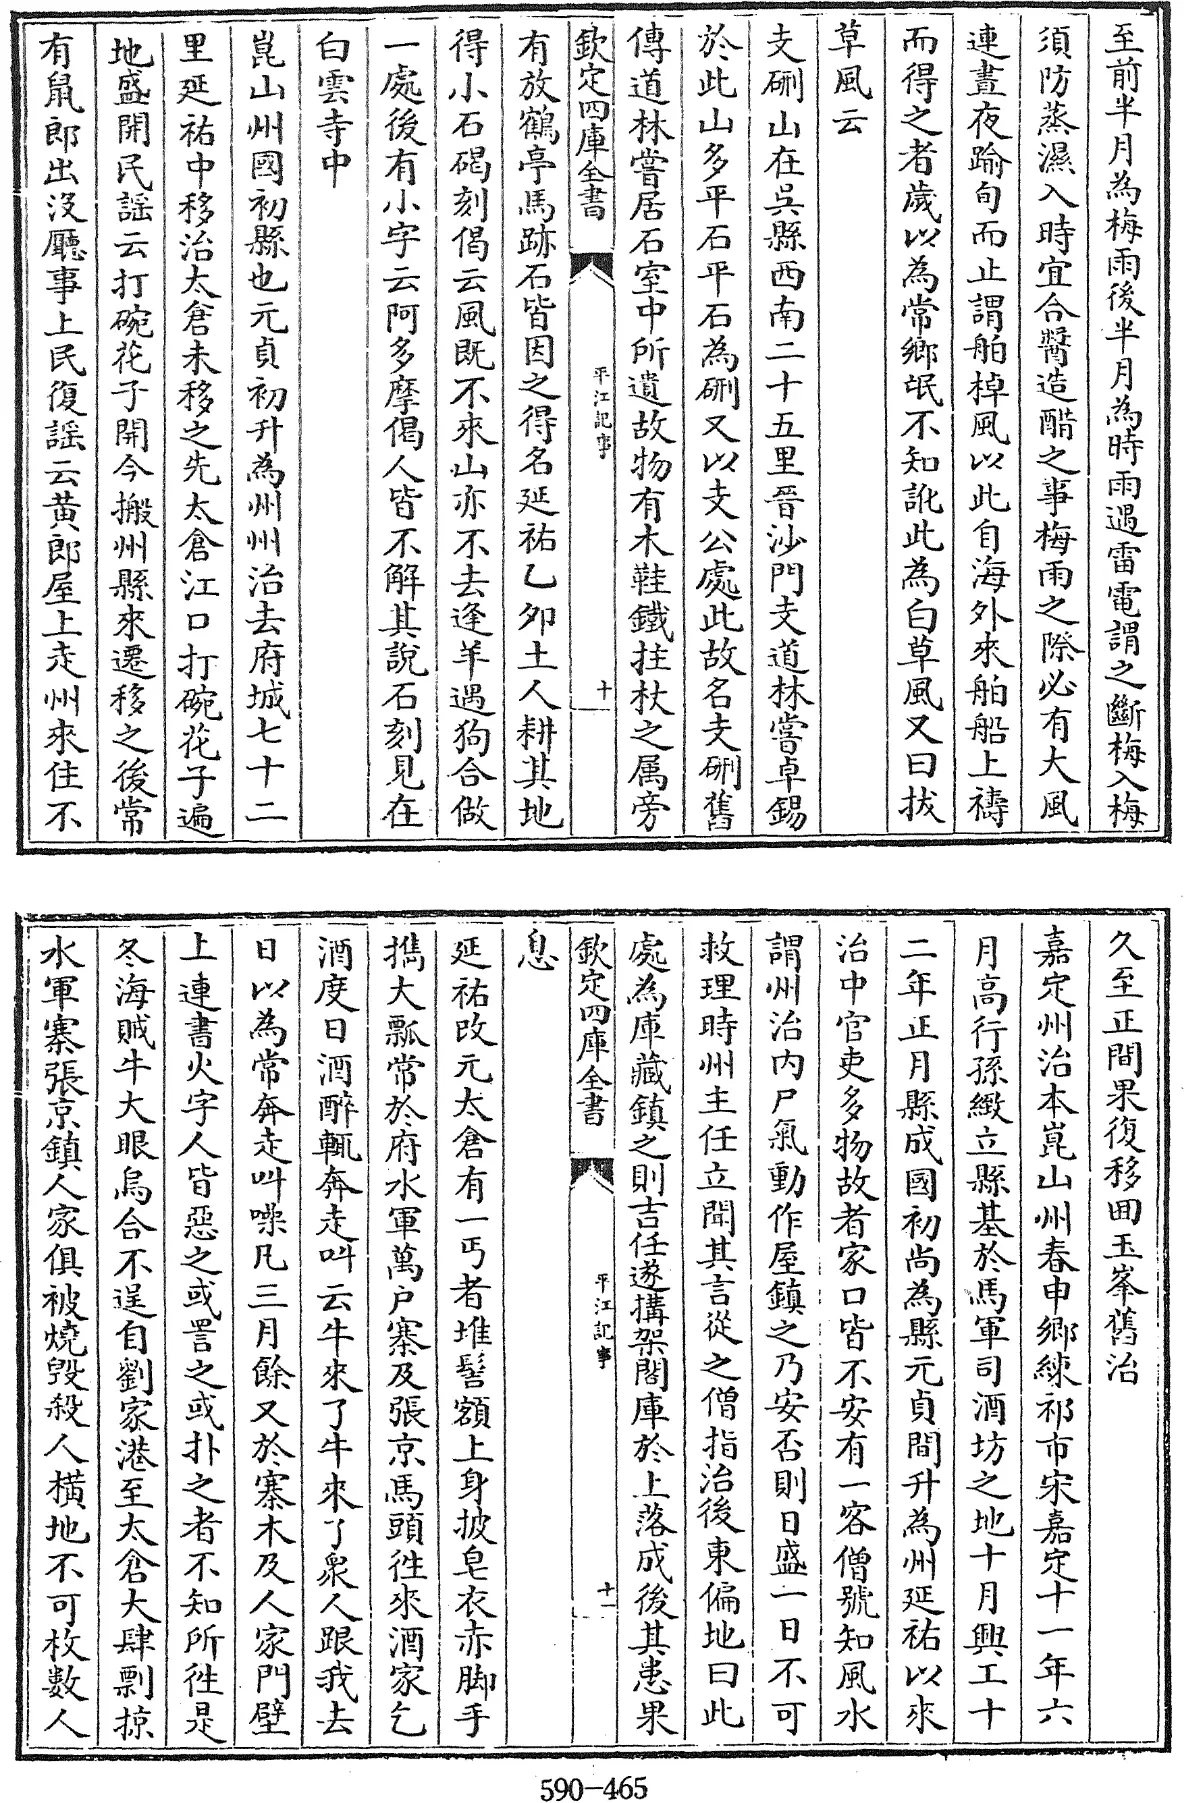 至前半月為梅雨後半月為時雨遇雷電謂之斷梅入梅
須防蒸濕入時宜合醬造醋之事梅雨之際必有大風
連晝夜踰旬而止謂舶棹風以此自海外來舶船上禱
而得之者歲以為常鄉氓不知訛此為白草風又曰拔
草風云
支硎山在吳縣西南二十五里晉沙門支道林嘗卓錫
於此山多平石平石為硎又以支公處此故名支硎舊
傳道林嘗居石室中所遺故物有木鞋鐵拄杖之属旁
欽定四庫全書
平江記事
十
有放鶴亭馬跡石皆因之得名延祐乙夘土人耕其地
得小石碣刻偈云風既不來山亦不去逢羊遇狗合做
一處後有小字云阿多摩偈人皆不解其說石刻見在
白雲寺中
崑山州國初縣也元貞初升為州州治去府城七十二
里延祐中移治太倉未移之先太倉江口打碗花子遍
地盛開民謡云打碗花子開今搬州縣來遷移之後常
有鼠郎出沒廳事上民復謡云黄郎屋上走州來住不
久至正間果復移囬玉峯舊治
嘉定州治本崑山州春申鄉練祁市宋嘉定十一年六
月高行孫緻立縣基於馬軍司酒坊之地十月興工十
二年正月縣成國初尚為縣元貞間升為州延祐以來
治中官吏多物故者家口皆不安有一客僧號知風水
謂州治内尸氣動作屋鎮之乃安否則日盛一日不可
救理時州主任立聞其言從之僧指治後東偏地曰此
處為庫藏鎮之則吉任遂搆架閣庫於上落成後其患果
欽定四庫全書
平江記事
十一
息
延祐改元太倉有一丐者堆髻額上身披皂衣赤脚手
擕大瓢常於府水軍萬户寨及張京馬頭徃來酒家乞
酒度日酒醉輒奔走叫云牛來了牛來了衆人跟我去
日以為常奔走叫噪凡三月餘又於寨木及人家門壁
上連書火字人皆惡之或詈之或扑之者不知所徃是
冬海賊牛大眼烏合不逞自劉家港至太倉大肆剽掠
水軍寨張京鎮人家俱被燒毁殺人横地不可枚數人
590-465